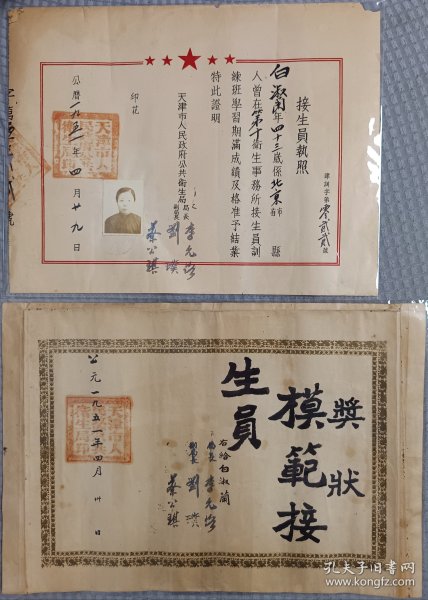 接生員執照
津訓字第零貳貳號
白淑蘭年四十三歲係北京市縣
人曾在第十衛生事務所接生員訓
練班學習期滿成績及格准予結業
特此證明
天津市人民政府公共衛生局
局長
副局長
李允恪
劉璞
蔡公琪
印花
公曆一九五一年四月廿九日
獎狀
模範接
生員
右給白淑蘭
李允恪
劉璞
蔡公琪
公元一九五一年四月卅日
孔夫子旧书网
www.kongfz.com